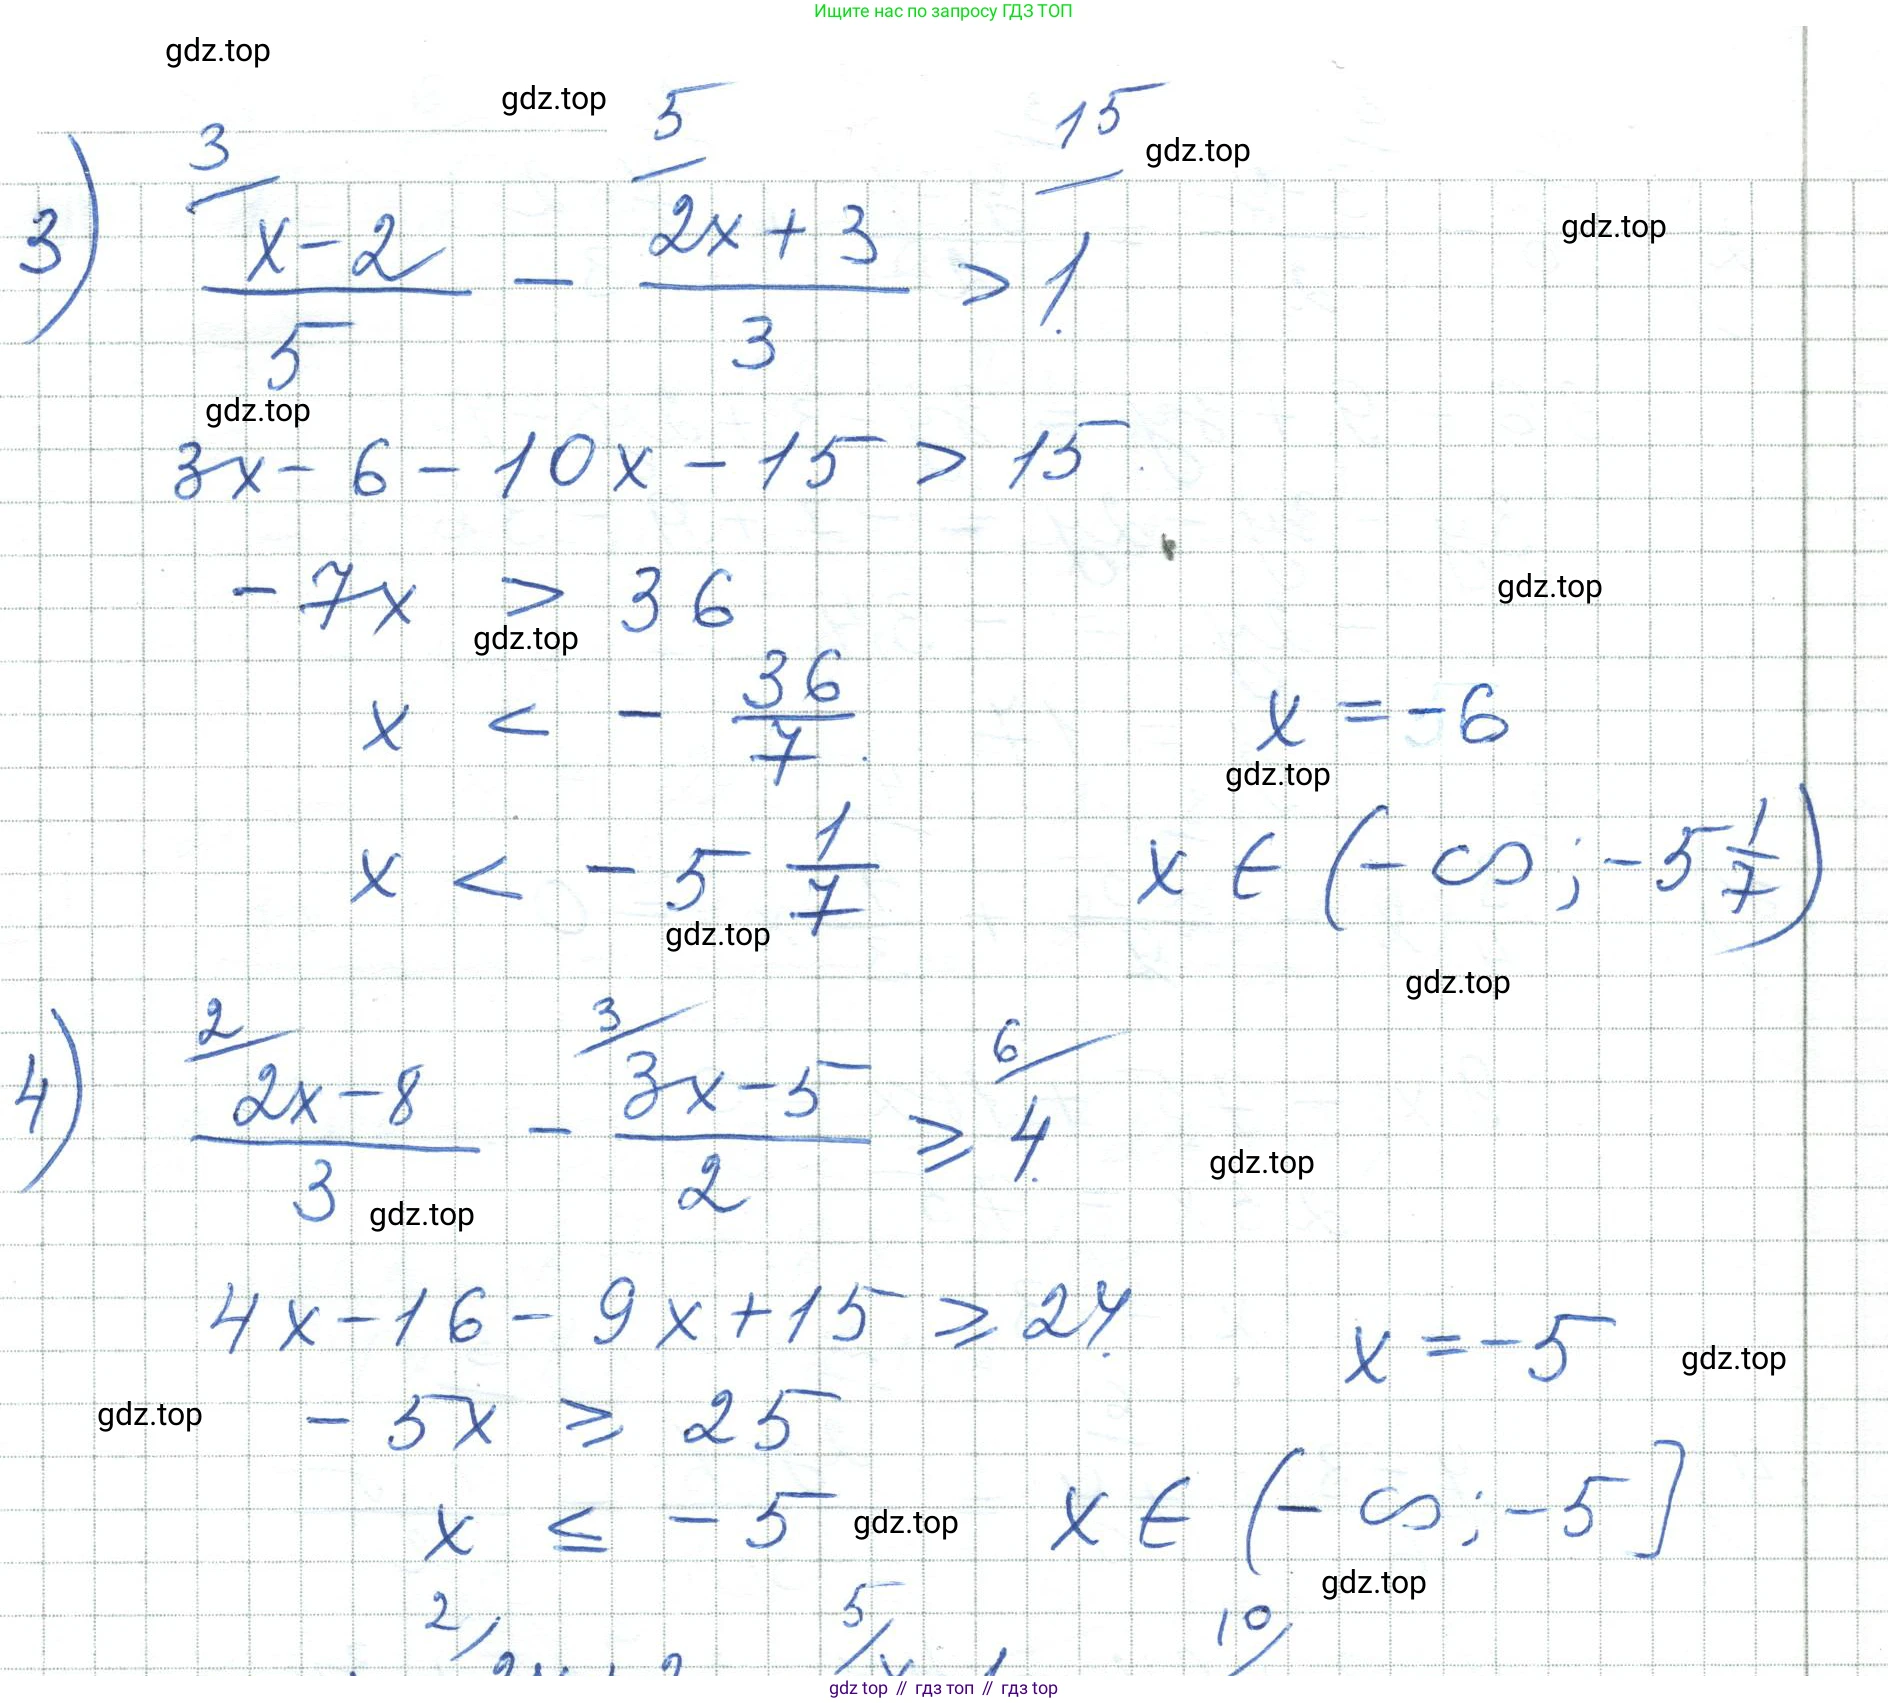 Ищите нас по запросу ГДЗ ТОП
gdz.top
gdz.top
3 5 15
gdz.top
3) (x-2)/5 - (2x+3)/3 > 1.
gdz.top
gdz.top
3x - 6 - 10x - 15 > 15.
-7x > 36
gdz.top
gdz.top
x < -36/7. x = -6
gdz.top
x < -5 1/7 x ∈ (-∞; -5 1/7)
gdz.top
gdz.top
2 3 6
4) (2x-8)/3 - (3x-5)/2 ≥ 4.
gdz.top
gdz.top
4x - 16 - 9x + 15 ≥ 24. x = -5
gdz.top
gdz.top
-5x ≥ 25
x ≤ -5 x ∈ (-∞; -5]
gdz.top
gdz.top
2 5 10
gdz top // гдз топ // гдз top